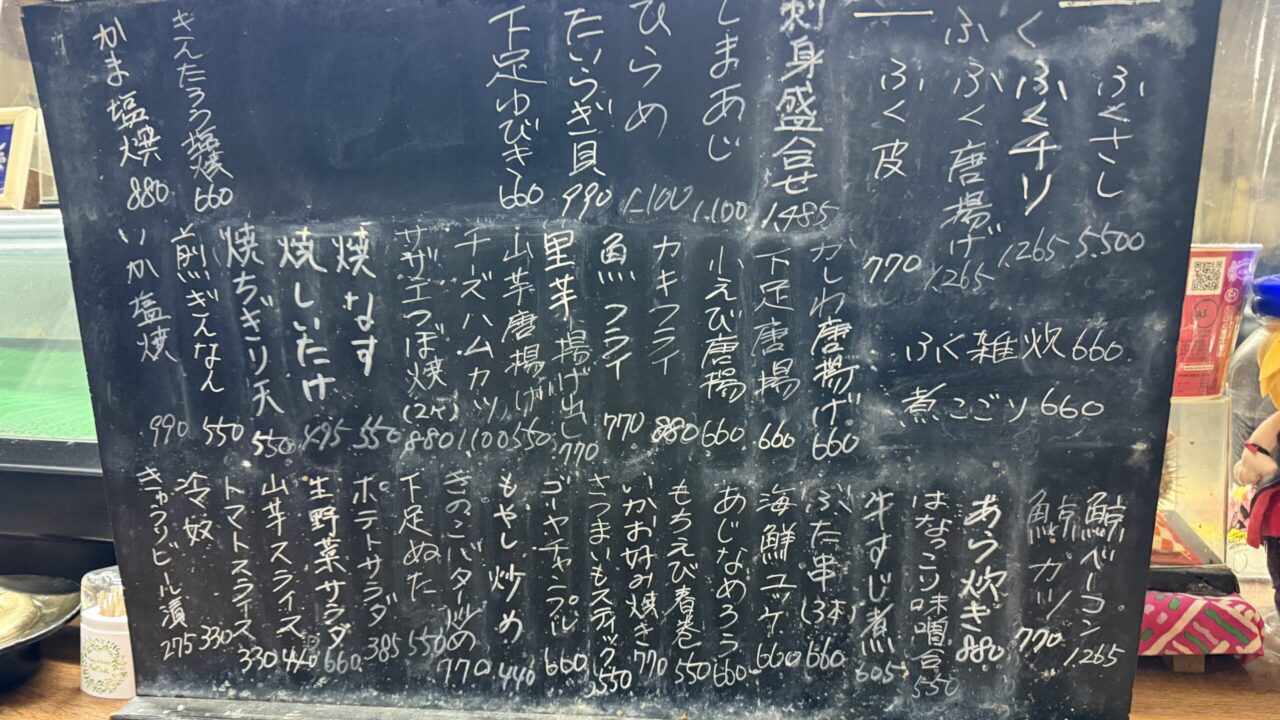 ふく
ふくさし 5,500
ふくチリ 1,265
ふく唐揚げ 1,265
ふく皮 770
ふく雑炊 660
煮こごり 660
刺身盛合せ 1,485
しまあじ 1,100
ひらめ 1,100
たいらぎ貝 990
下足ゆびき 660
きんたろう塩焼 660
かま塩焼 880
かしわ唐揚げ 660
下足唐揚 660
小えび唐揚 660
カキフライ 880
魚フライ 770
里芋揚げ出し 770
山芋唐揚げ 550
チーズハムカツ 1,100
サザエつぼ焼(2ケ) 880
焼なす 550
焼しいたけ 495
焼ちぎり天 550
煎ぎんなん 550
いか塩焼 990
鯨ベーコン 1,265
鯨カツ 770
あら炊き 880
はなっこり味噌合 550
牛すじ煮 605
ぶた串(3本) 660
海鮮ユッケ 660
あじなめろう 660
もちえび春巻 550
いかお好み焼き 770
さつまいもスティック 550
ゴーヤチャンプル 660
もやし炒め 440
きのこバター炒め 770
下足ぬた 550
ポテトサラダ 385
生野菜サラダ 660
山芋スライス 440
トマトスライス 330
冷奴 330
きゅうりビール漬 275